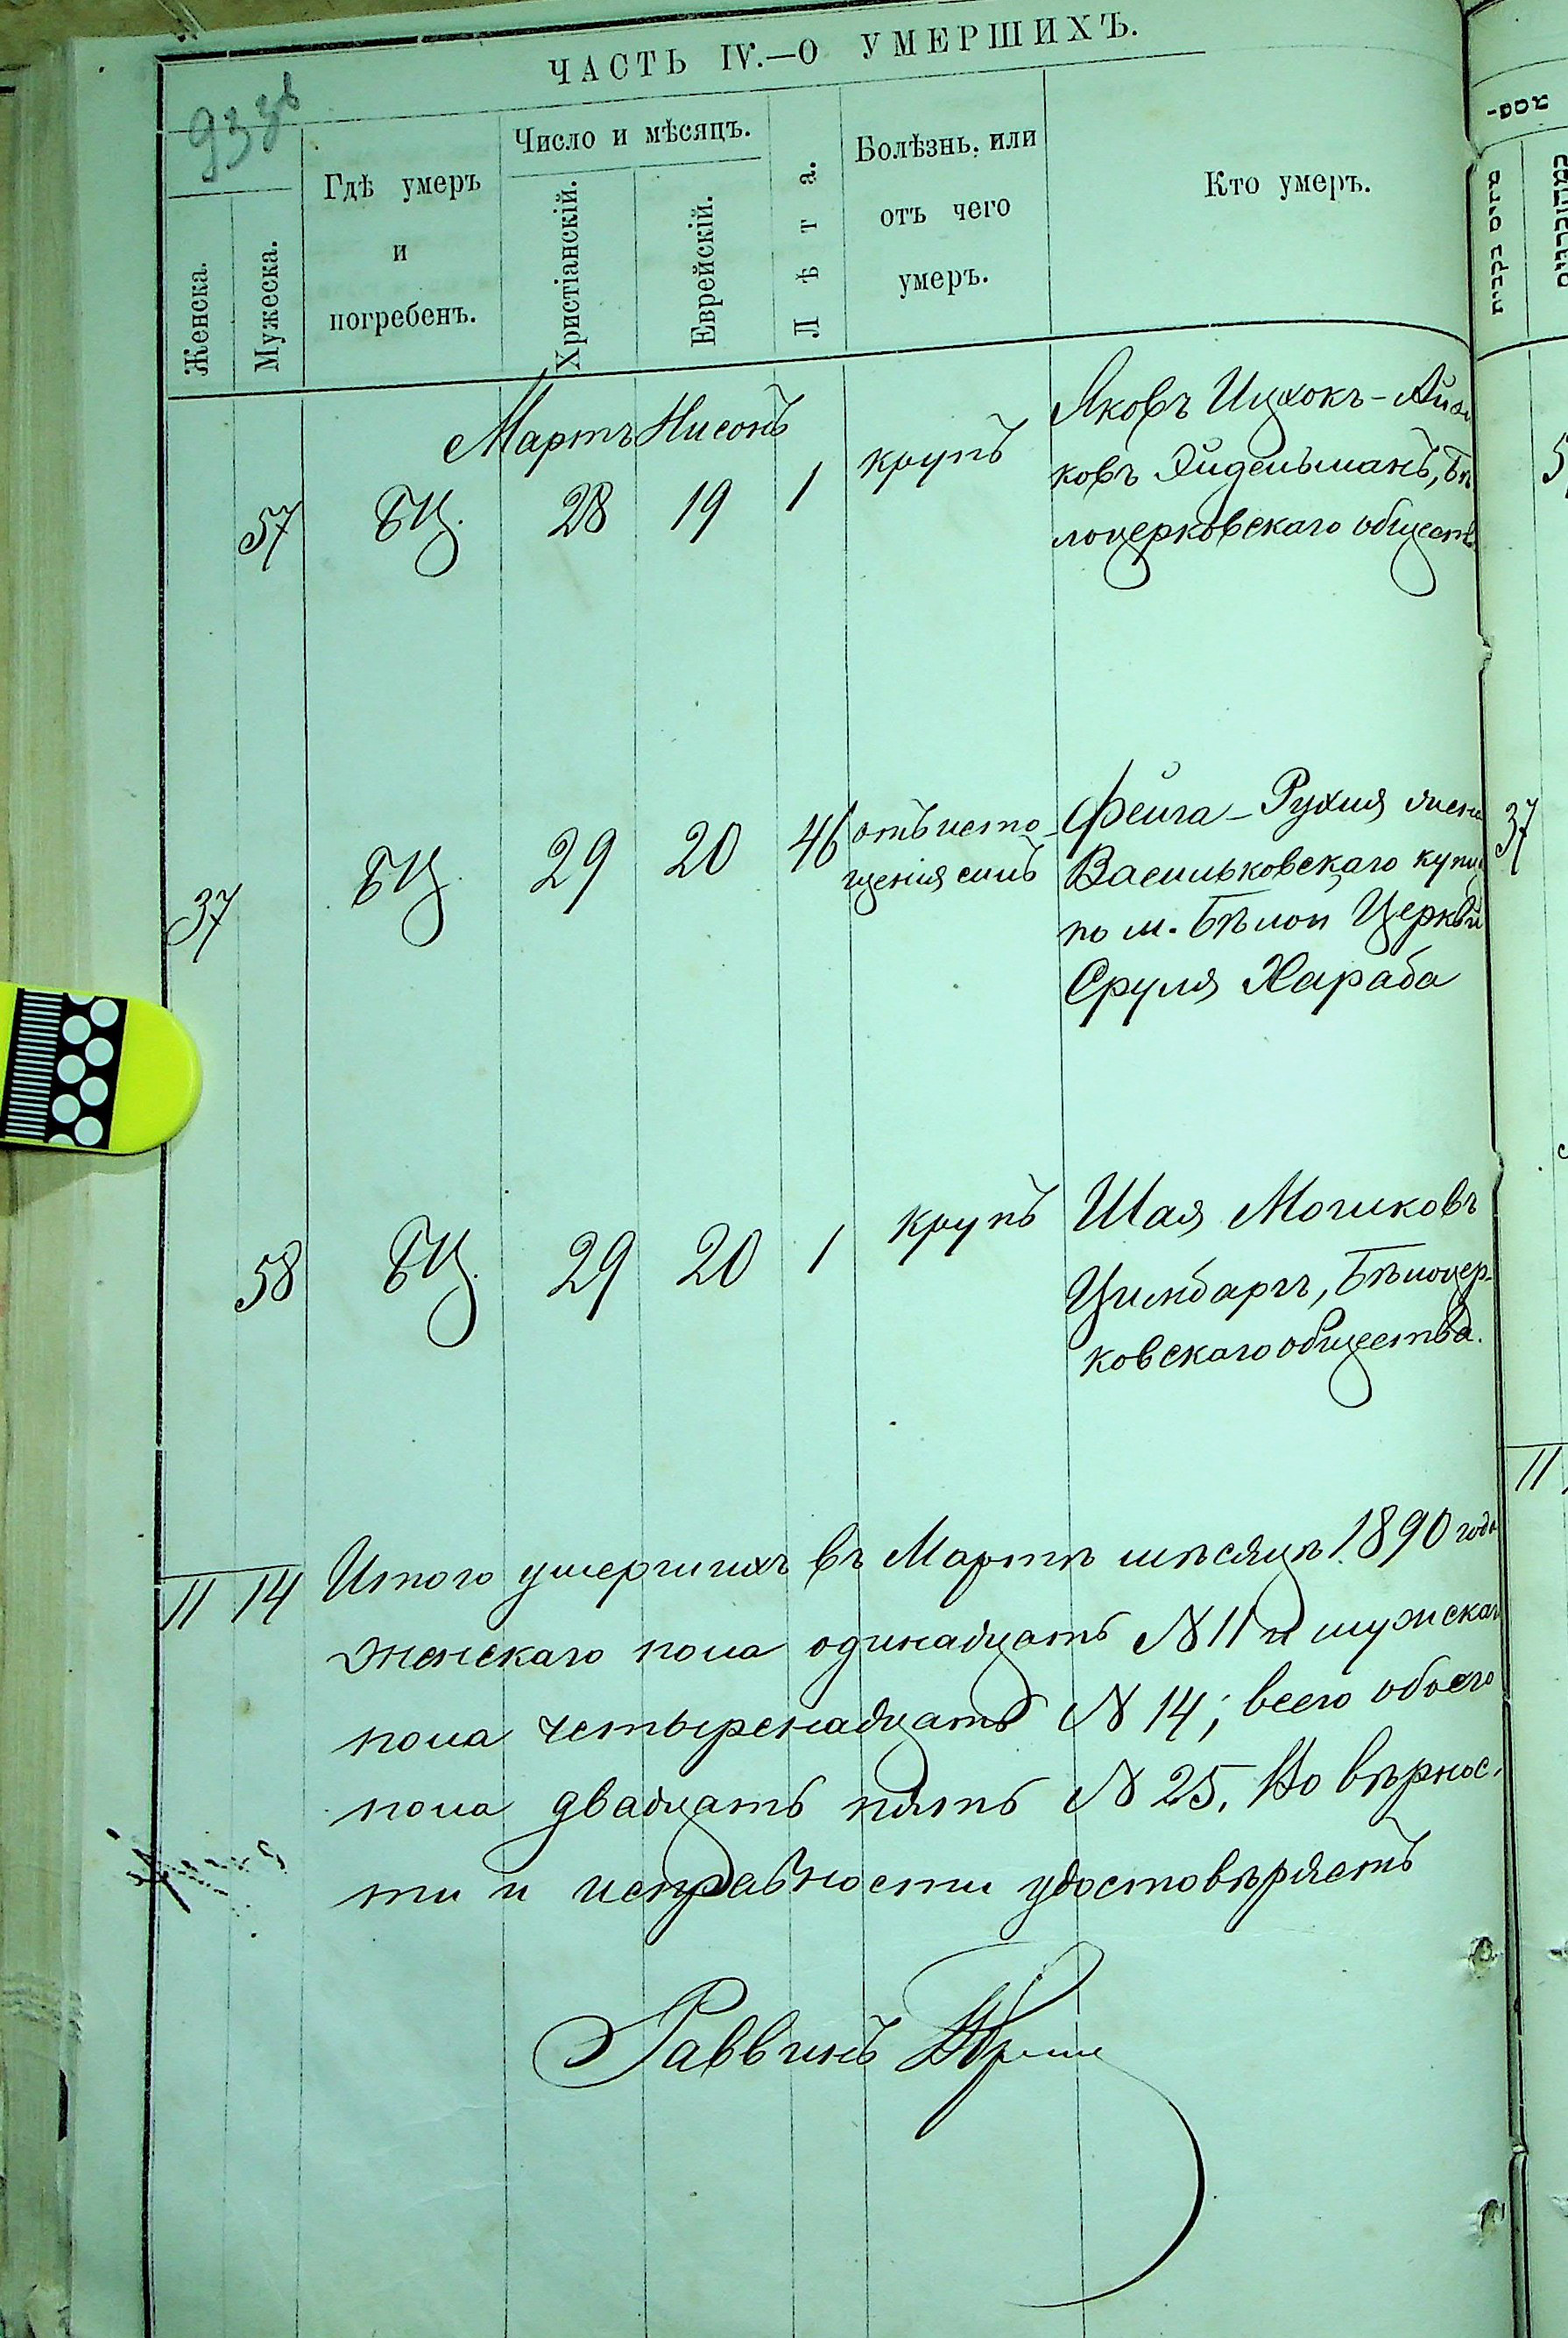 ЧАСТЬ IV.—О УМЕРШИХЪ.
93 зв
Женска.
Мужеска.
Гдѣ умеръ
и
погребенъ.
Число и мѣсяцъ.
Христіанскій.
Еврейскій.
Лѣта.
Болѣзнь, или
отъ чего
умеръ.
Кто умеръ.
Мартъ Нисонъ
57 БЦ. 28 19 1 крупъ
Яковъ Ицхокъ-Айзи
ковъ Эйдельманъ, Бѣ
лоцерковскаго обществ
37 БЦ. 29 20 46
отъ исто-
щенія силъ
Фейга-Рухля жена
Васильковскаго купц
по м. Бѣлой Церкви
Сруля Хараба
58 БЦ. 29 20 1 крупъ
Шая Мошковъ
Цимбаргъ, Бѣлоцер-
ковскаго общества.
11 14 Итого умершихъ въ Мартѣ мѣсяцѣ 1890 года
женскаго пола одинадцать N 11 и мужскаг
пола четыренадцать N 14; всего обоего
пола двадцать пять N 25. Но вѣрнос-
ти и исправности удостовѣряетъ
Раввинъ
37
11